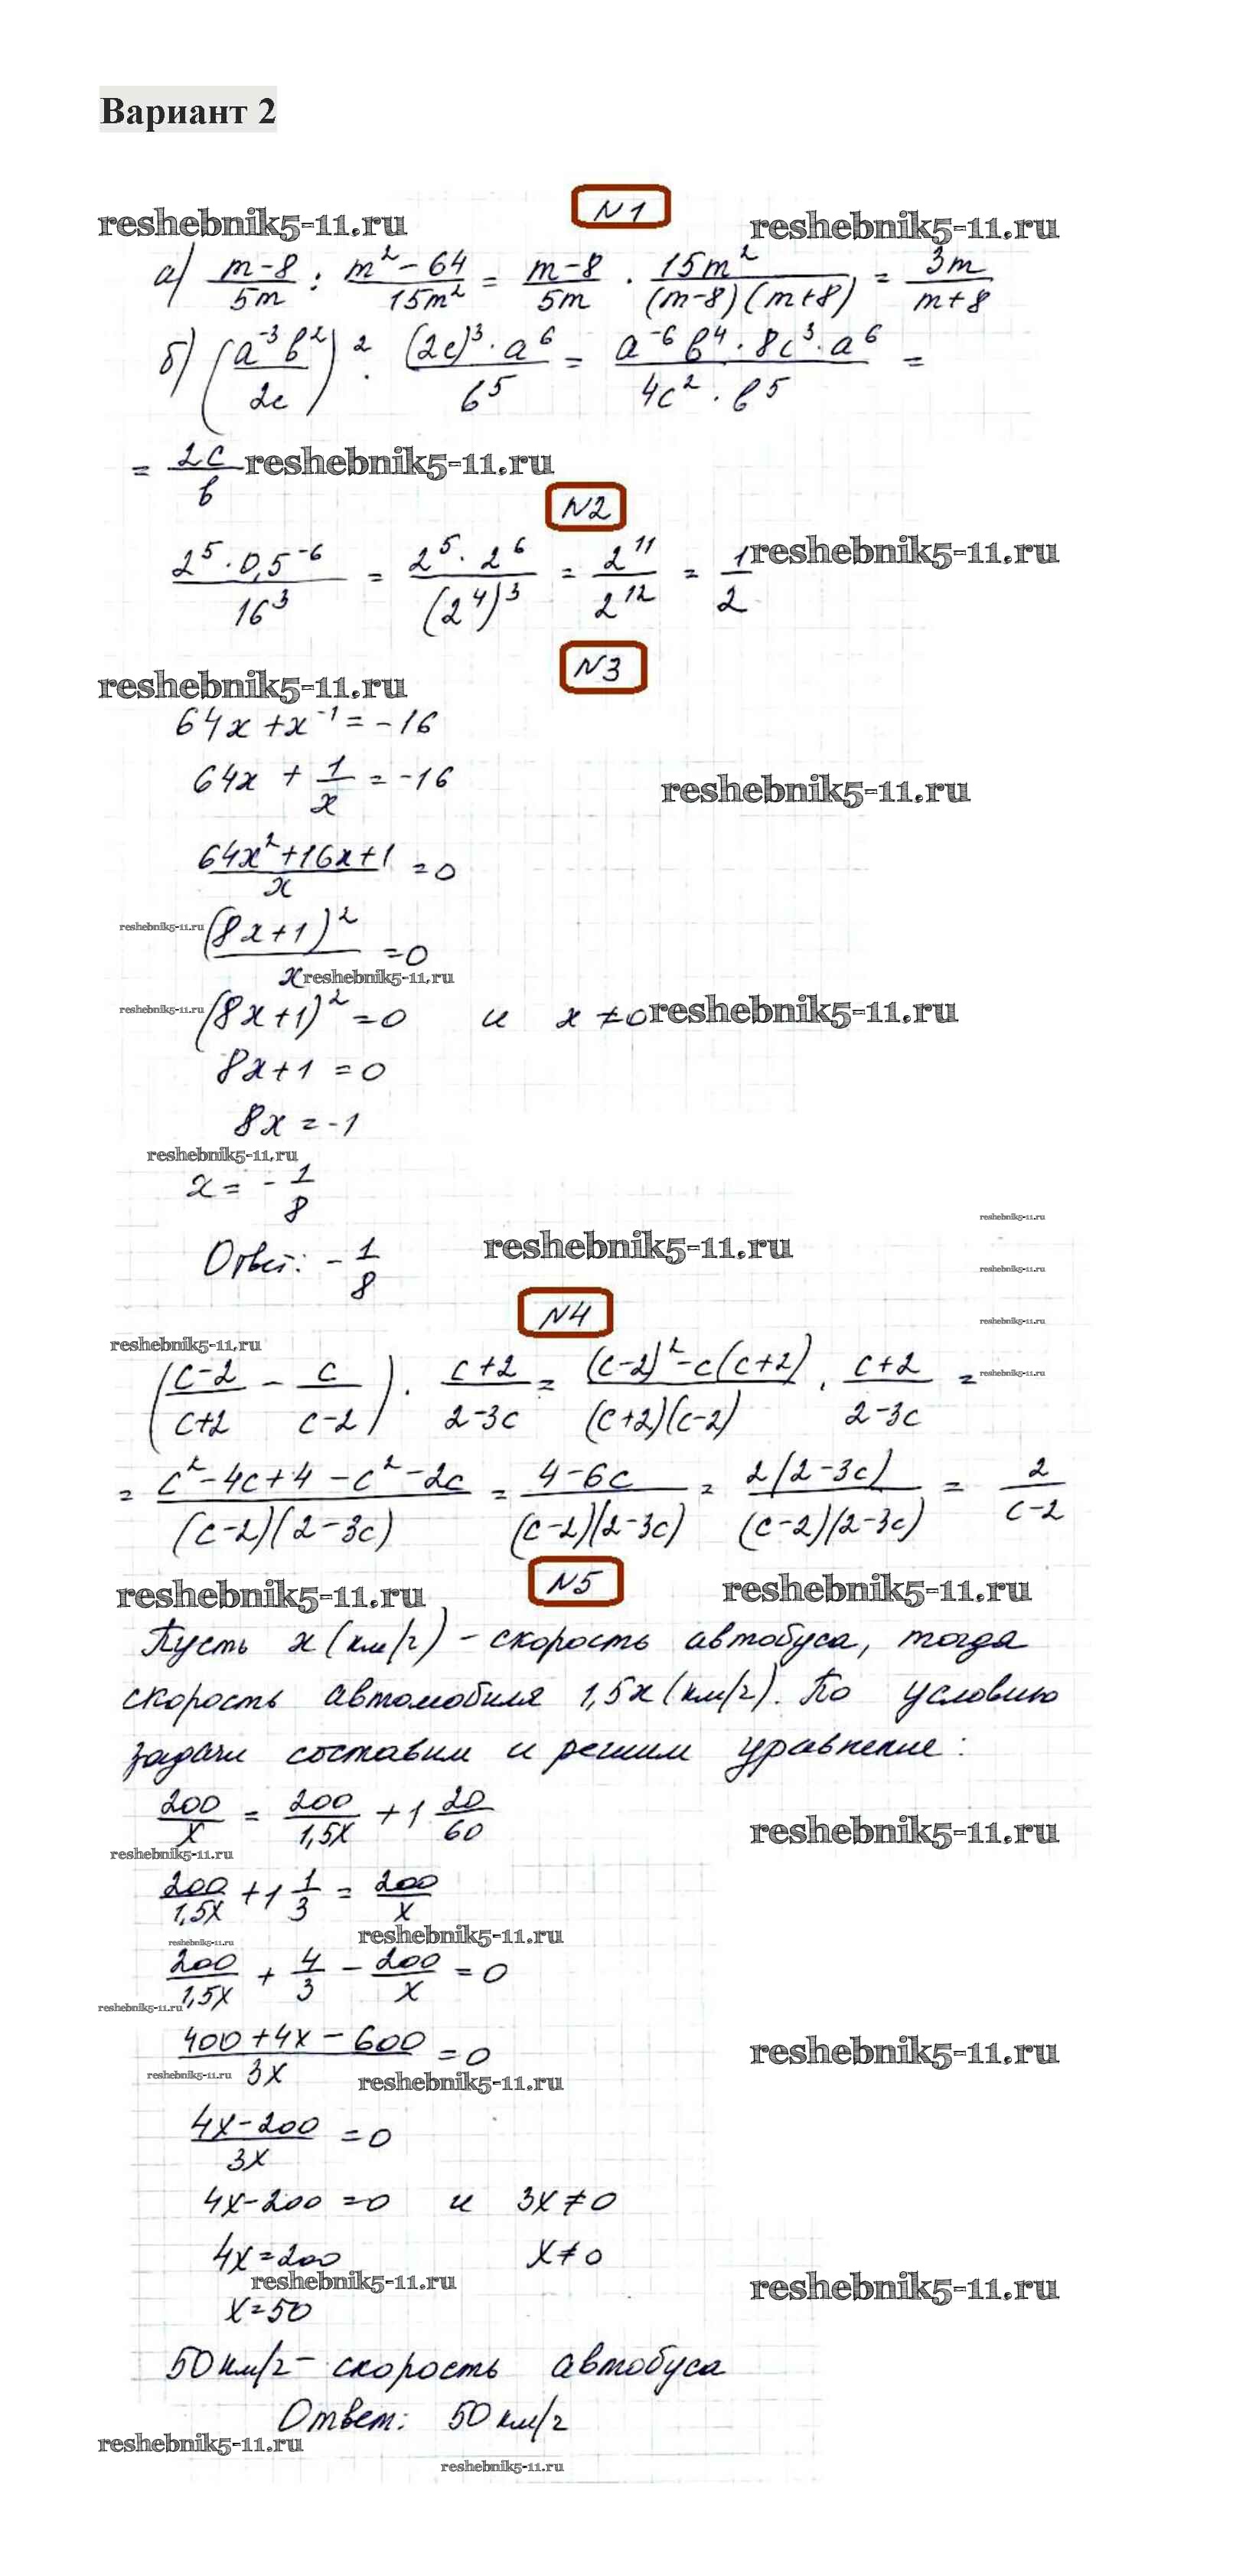 Вариант 2
N1
reshebnik5-11.ru reshebnik5-11.ru
а) (m-8)/(5m) : (m²-64)/(15m²) = (m-8)/(5m) · (15m²)/((m-8)(m+8)) = (3m)/(m+8)
б) ((a⁻³b²)/(2c))² · ((2c)³·a⁶)/(b⁵) = (a⁻⁶b⁴·8c³·a⁶)/(4c²·b⁵) =
= (2c)/b reshebnik5-11.ru
N2
(2⁵·0,5⁻⁶)/(16³) = (2⁵·2⁶)/((2⁴)³) = 2¹¹/2¹² = 1/2 reshebnik5-11.ru
N3
reshebnik5-11.ru
64x+x⁻¹=-16
64x + 1/x = -16 reshebnik5-11.ru
(64x²+16x+1)/x = 0
reshebnik5-11.ru ((8x+1)²)/x = 0
reshebnik5-11.ru
reshebnik5-11.ru (8x+1)²=0 и x≠0 reshebnik5-11.ru
8x+1=0
8x=-1
reshebnik5-11.ru
x = -1/8
reshebnik5-11.ru
Ответ: -1/8 reshebnik5-11.ru
reshebnik5-11.ru
N4 reshebnik5-11.ru
reshebnik5-11.ru
((c-2)/(c+2) - c/(c-2)) · (c+2)/(2-3c) = ((c-2)²-c(c+2))/((c+2)(c-2)) · (c+2)/(2-3c) = reshebnik5-11.ru
= (c²-4c+4-c²-2c)/((c-2)(2-3c)) = (4-6c)/((c-2)(2-3c)) = (2(2-3c))/((c-2)(2-3c)) = 2/(c-2)
N5
reshebnik5-11.ru reshebnik5-11.ru
Пусть x (км/ч) - скорость автобуса, тогда
скорость автомобиля 1,5x (км/ч). По условию
задачи составим и решим уравнение:
200/x = 200/(1,5x) + 1 20/60 reshebnik5-11.ru
reshebnik5-11.ru
200/(1,5x) + 1 1/3 = 200/x
reshebnik5-11.ru reshebnik5-11.ru
200/(1,5x) + 4/3 - 200/x = 0
reshebnik5-11.ru
(400+4x-600)/(3x) = 0 reshebnik5-11.ru
reshebnik5-11.ru reshebnik5-11.ru
(4x-200)/(3x) = 0
4x-200=0 и 3x≠0
4x=200 x≠0
reshebnik5-11.ru reshebnik5-11.ru
x=50
50 км/ч - скорость автобуса
Ответ: 50 км/ч
reshebnik5-11.ru
reshebnik5-11.ru